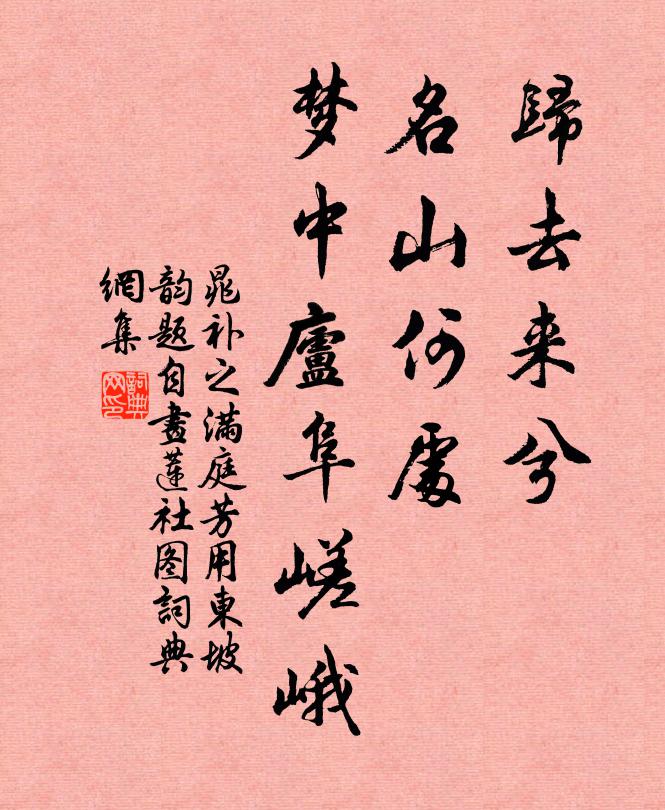 歸去来兮
名山何處
梦中廬阜嵯峨
晁补之满庭芳用東坡
韵题自畫蓮社图詞典
網集
詞典网印